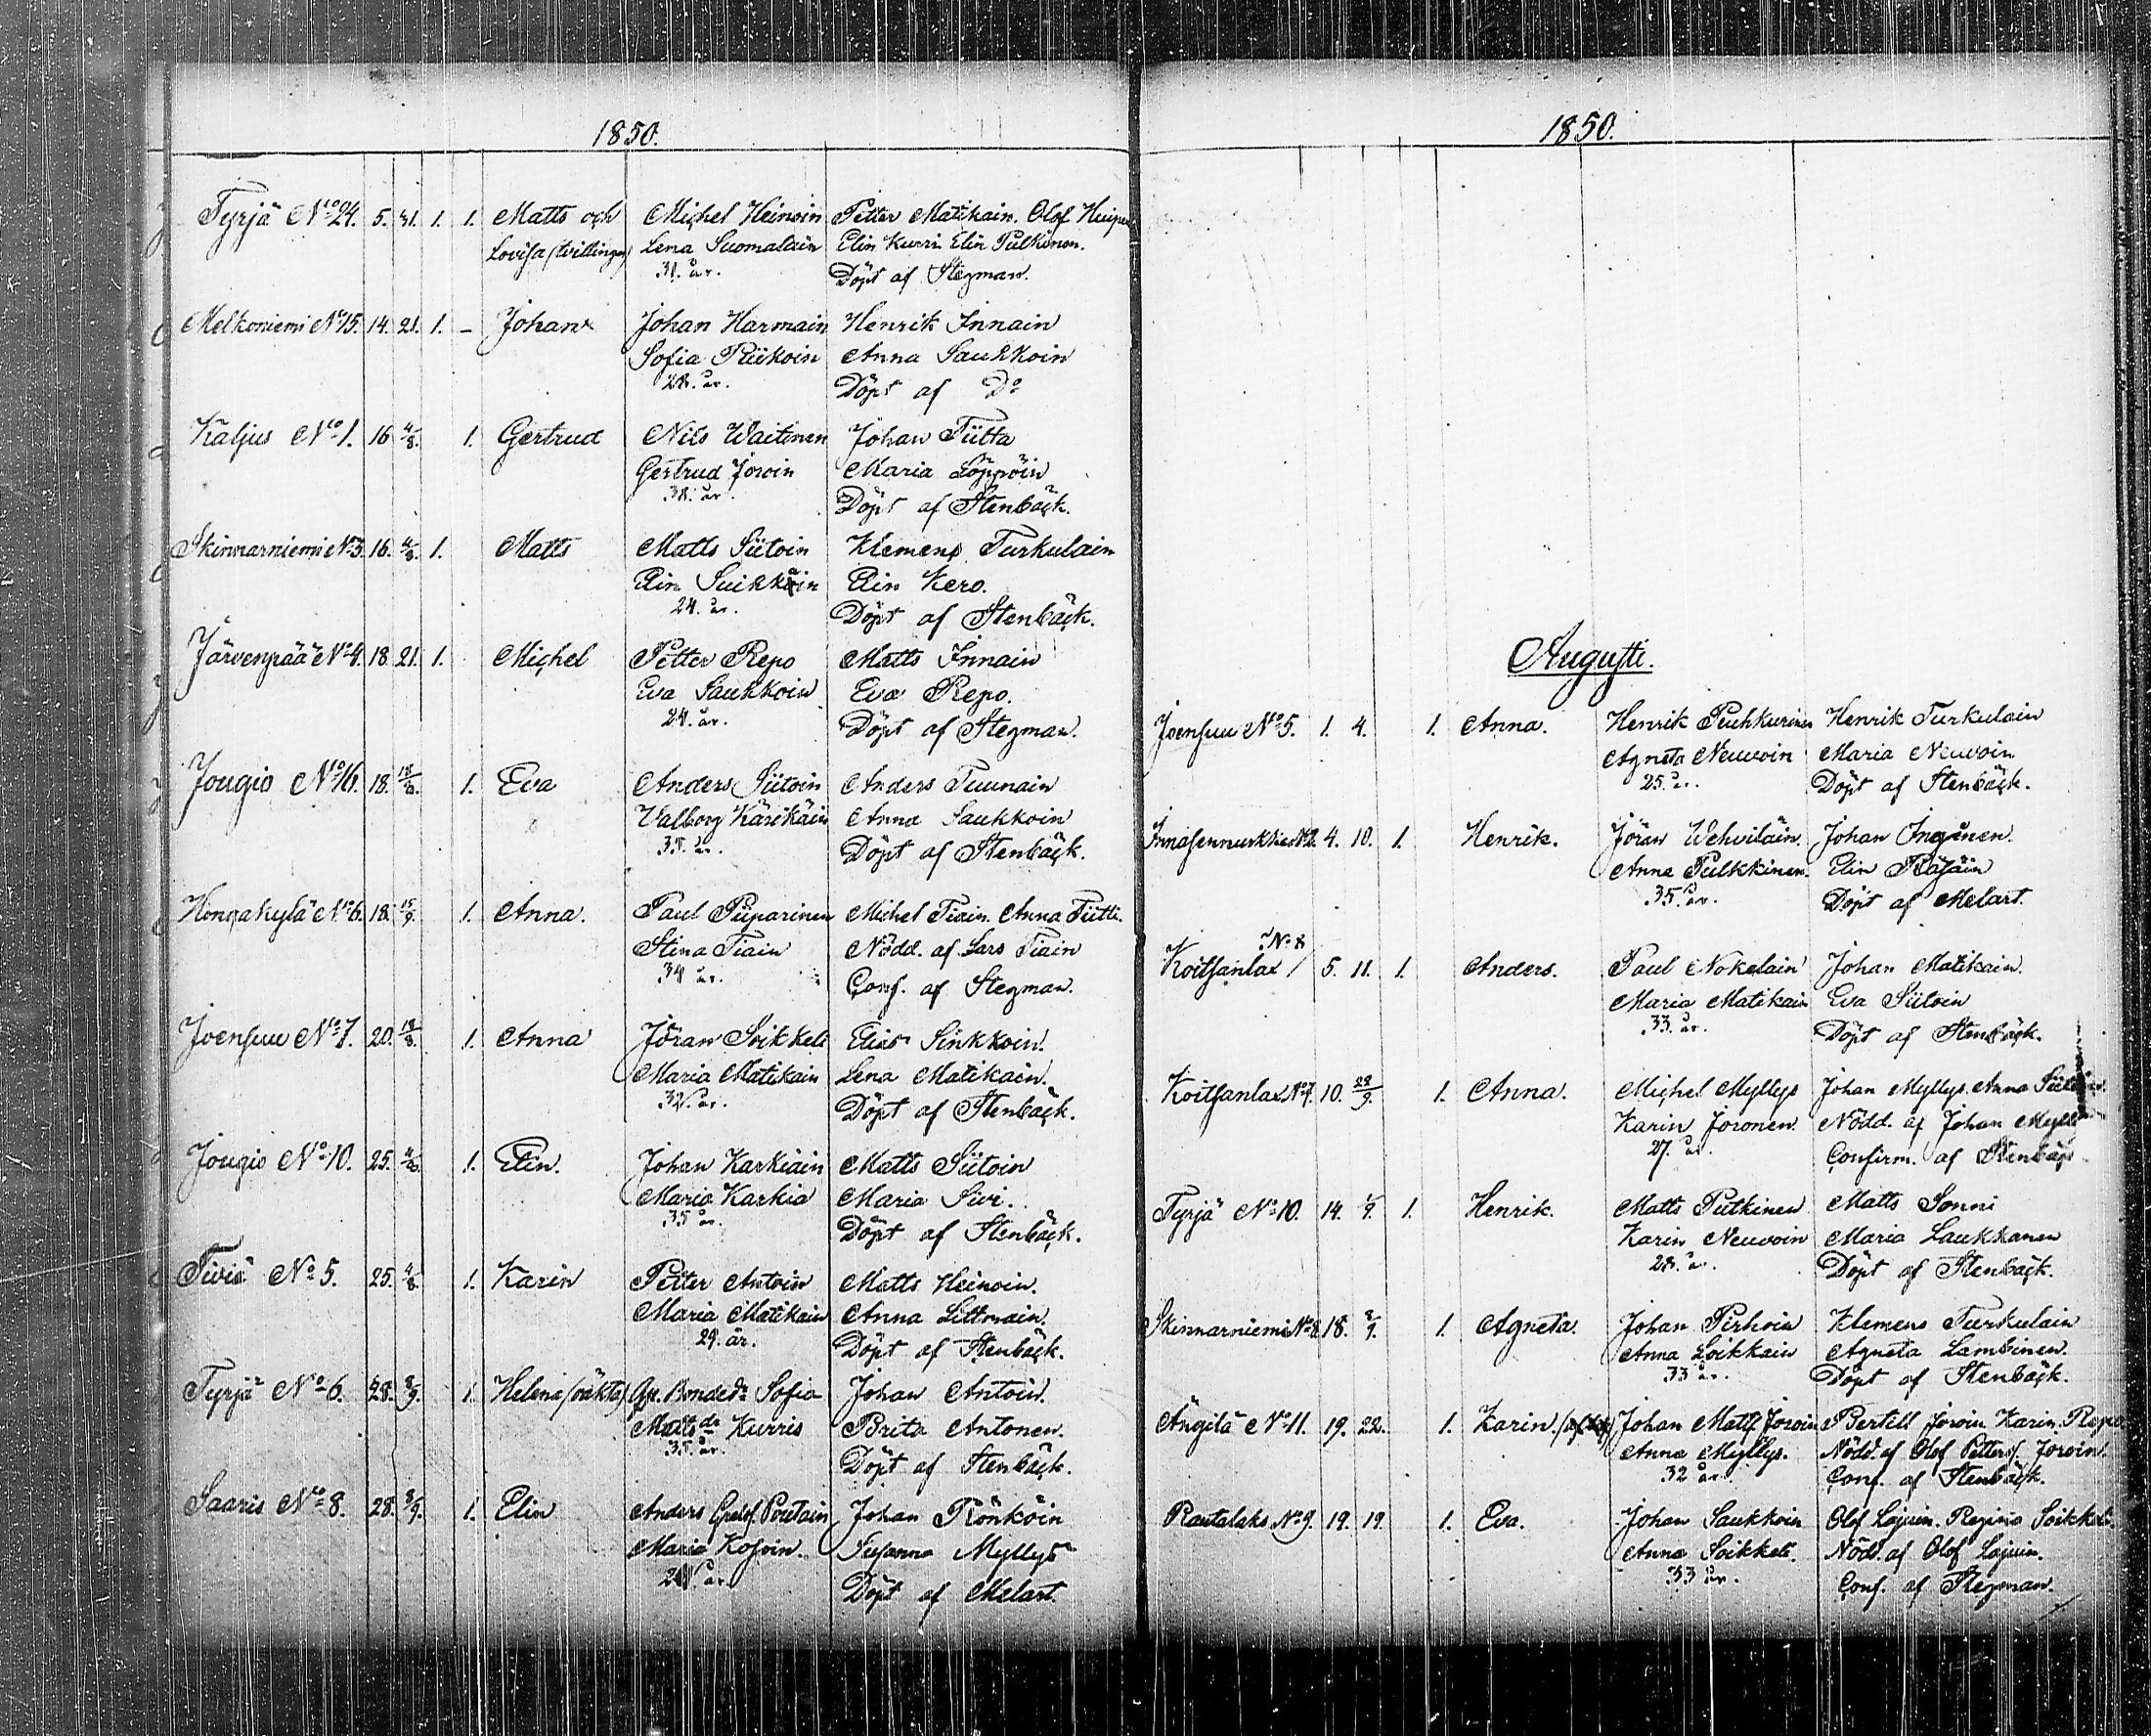 1850.
Tyrjä No 24. 5. 31. 1. 1. Matts och Michel Heinoin Petter Matikain. Olof
Lovisa (tvillingar) Lena Suomalain Elin Kurri Elin Pulkinen.
31. år. Döpt af Stegman.
Melkoniemi No 15. 14. 21. 1. – Johan Johan Harmain Henrik Innain
Sofia Riikoin Anna Saukkoin
28. år. Döpt af Do
Kaljus No 1. 16. 4/8. 1. Gertrud Nils Waitinen Johan Tiitta
Gertrud Joroin Maria Löppöin
38. år. Döpt af Stenbäck.
Skinnarniemi No 3. 16. 4/8. 1. Matts Matts Siitoin Klemens Turkulain
Elin Suikkain Elin Kero.
24. år. Döpt af Stenbäck.
Järvenpää No 4. 18. 21. 1. Michel Petter Repo Matts Innain
Eva Saukkoin Eva Repo.
24. år. Döpt af Stegman.
Jougio No 16. 18. 1. Eva Anders Siitoin Anders Tuunain
Valborg Kärikäin Anna Saukkoin
35. år. Döpt af Stenbäck.
Hongakylä No 6. 18. 15/9. 1. Anna. Paul Piiparinen Michel Tiain. Anna Tiitti.
Stina Tiain Nödd. af Lars Tiain
34 år. Conf. af Stegman.
Joensuu No 7. 20. 18/8. 1. Anna Jöran Soikkeli Elias Sinkkoin.
Maria Matikain Lena Matikain.
32. år. Döpt af Stenbäck.
Jougio No 10. 25. 1. Elin. Johan Karkiain Matts Siitoin
Maria Karkia Maria Sivi.
35 år. Döpt af Stenbäck.
Tiviä No 5. 25. 4/8. 1. Karin Petter Antoin Matts Heinoin.
Maria Matikain Anna Littmain.
29. år. Döpt af Stenbäck.
Tyrjä No 6. 28. 8/9. 1. Helena (oäkta) Bonded. Sofia Johan Antoin.
Matts dr Kurris Brita Antonen.
35. år. Döpt af Stenbäck.
Saaris No 8. 28. 8/9. 1. Elin Anders Poutain Johan Rönköin
Maria Kosoin. Susanna Myllys
år Döpt af Melart.
1850.
Augusti.
Joensuu No 5. 1. 4. 1. Anna. Henrik Puhkurinen Henrik Turkulain
Agneta Neuvoin Maria Neuvoin
25. år. Döpt af Stenbäck.
4. 10. 1. Henrik. Jöran Wehviläin. Johan Ingånen.
Anna Pulkkinen. Elin Räsäin
35. år. Döpt af Melart.
No 8
Koitsanlax / 5. 11. 1. Anders. Paul Nokelain Johan Matikain.
Maria Matikain Eva Siitoin
33. år. Döpt af Stenbäck.
Koitsanlax No 7. 10. 22/9. 1. Anna. Michel Myllys Johan Myllys. Anna
Karin Joronen. Nödd. af Johan
27. år. Confirm. af Stenbäck
Tyrjä No 10. 14. 1/9. 1. Henrik. Matts Putkinen Matts Sonni
Karin Neuvoin Maria Laukkanen
28. år. Döpt af Stenbäck.
Skinnarniemi No 8. 18. 8/9. 1. Agneta. Johan Pirhoin Klemens Turkulain
Anna Loikkain Agneta Lambinen.
33 år. Döpt af Stenbäck.
Ängilä No 11. 19. 22. 1. Karin. Johan Matts Joroin Bertill Joroin Karin Repo
Anna Myllys. Nödd. af Olof Petters. Joroin.
32 år. Conf. af Stenbäck.
Rautalaks No 9. 19. 19. 1. Eva. Johan Saukkoin Olof Lajuin. Regina Soikkeli
Anna Soikkeli. Nödd. af Olof Lajuin.
33 år. Conf. af Stegman.